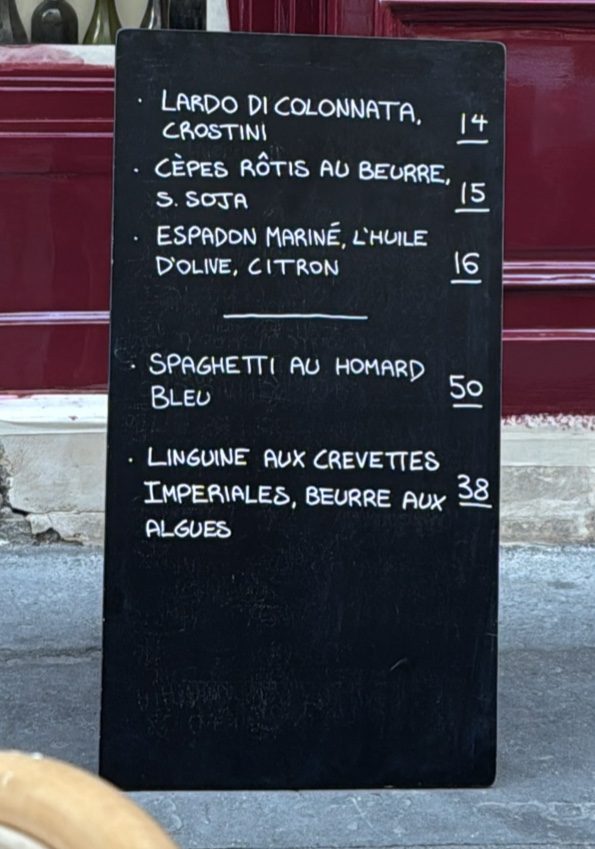 · LARDO DI COLONNATA, 14
CROSTINI
· CÈPES RÔTIS AU BEURRE,
S. SOJA 15
· ESPADON MARINÉ, L'HUILE
D'OLIVE, CITRON 16
· SPAGHETTI AU HOMARD
BLEU 50
· LINGUINE AUX CREVETTES
IMPERIALES, BEURRE AUX 38
ALGUES